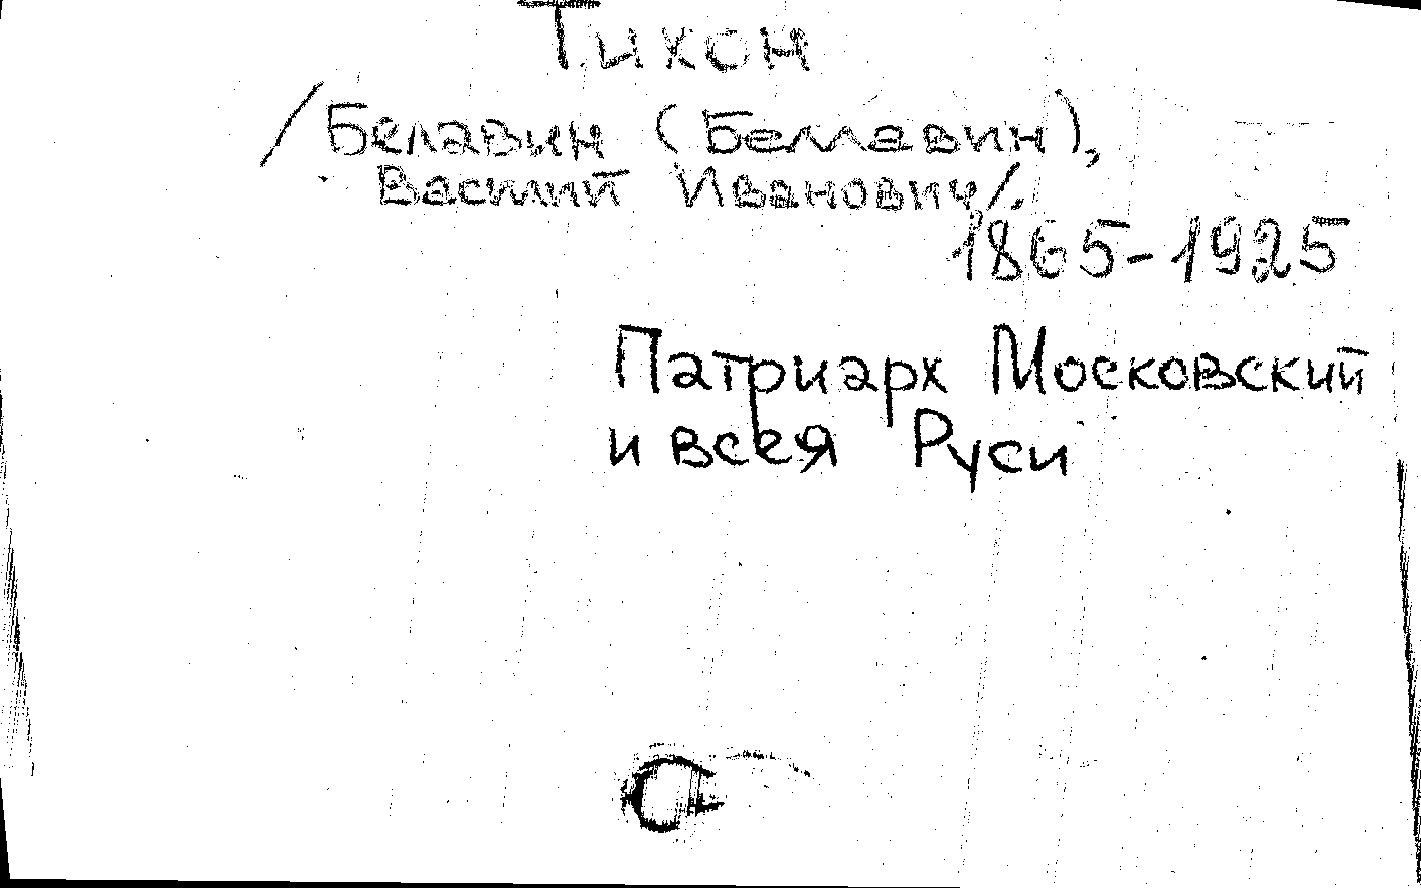 Тихон
/Белавин (Беллавин),
Василий Иванович/.
1865-1925
Патриарх Московский
и всея Руси